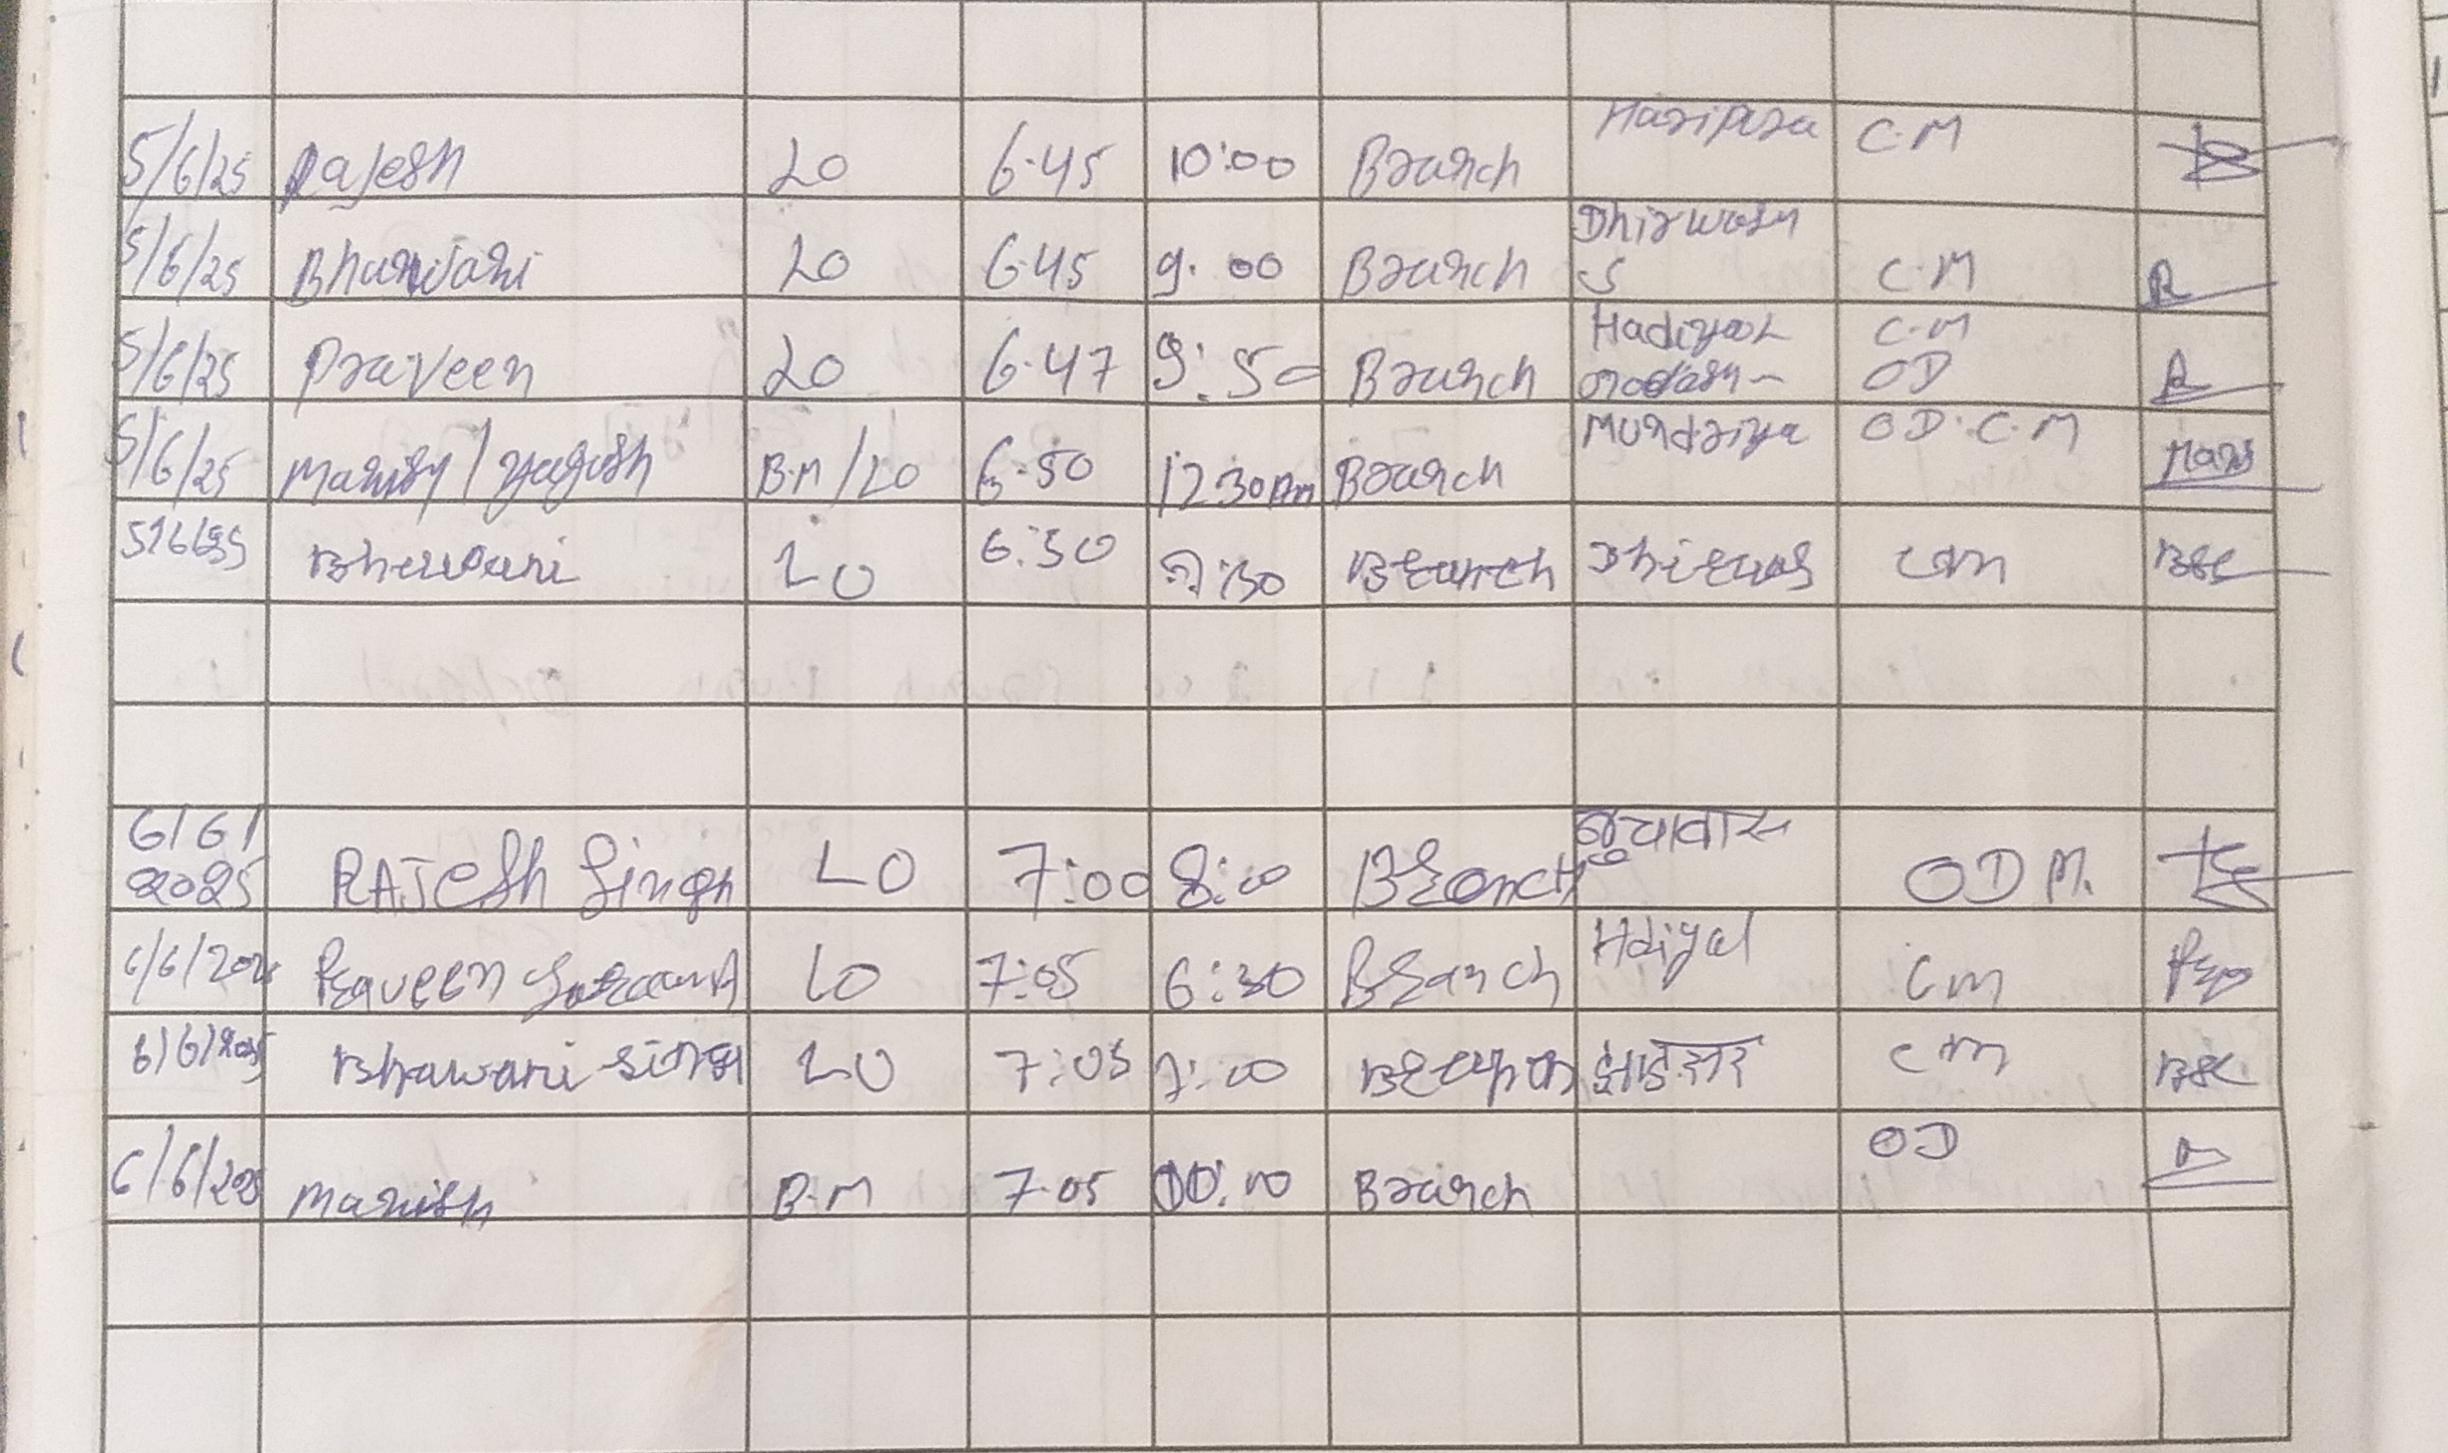 5/6/25 Rajesh LO 6.45 10:00 Branch Haripura C.M
5/6/25 Bhanwari LO 6.45 9.00 Branch Dhirwash S C.M
5/6/25 Praveen LO 6.47 9:50 Branch Hadiyal C.M OD
5/6/25 Manish / Yogesh B.M/LO 6.50 12 30 Pm Branch Mundriya OD.C.M
Bhewani LO 6:50 9:30 Branch Dhirwas cm
6/6/2025 RAJESh Singh LO 7:00 8:00 Branch OD M.
6/6/202 Praveen LO 7:05 6:30 Branch Hdiyal Cm
6/6/2025 Bhawani singh LO 7:05 7:00 cm
6/6/205 Manish B.M 7.05 10:00 Branch OD